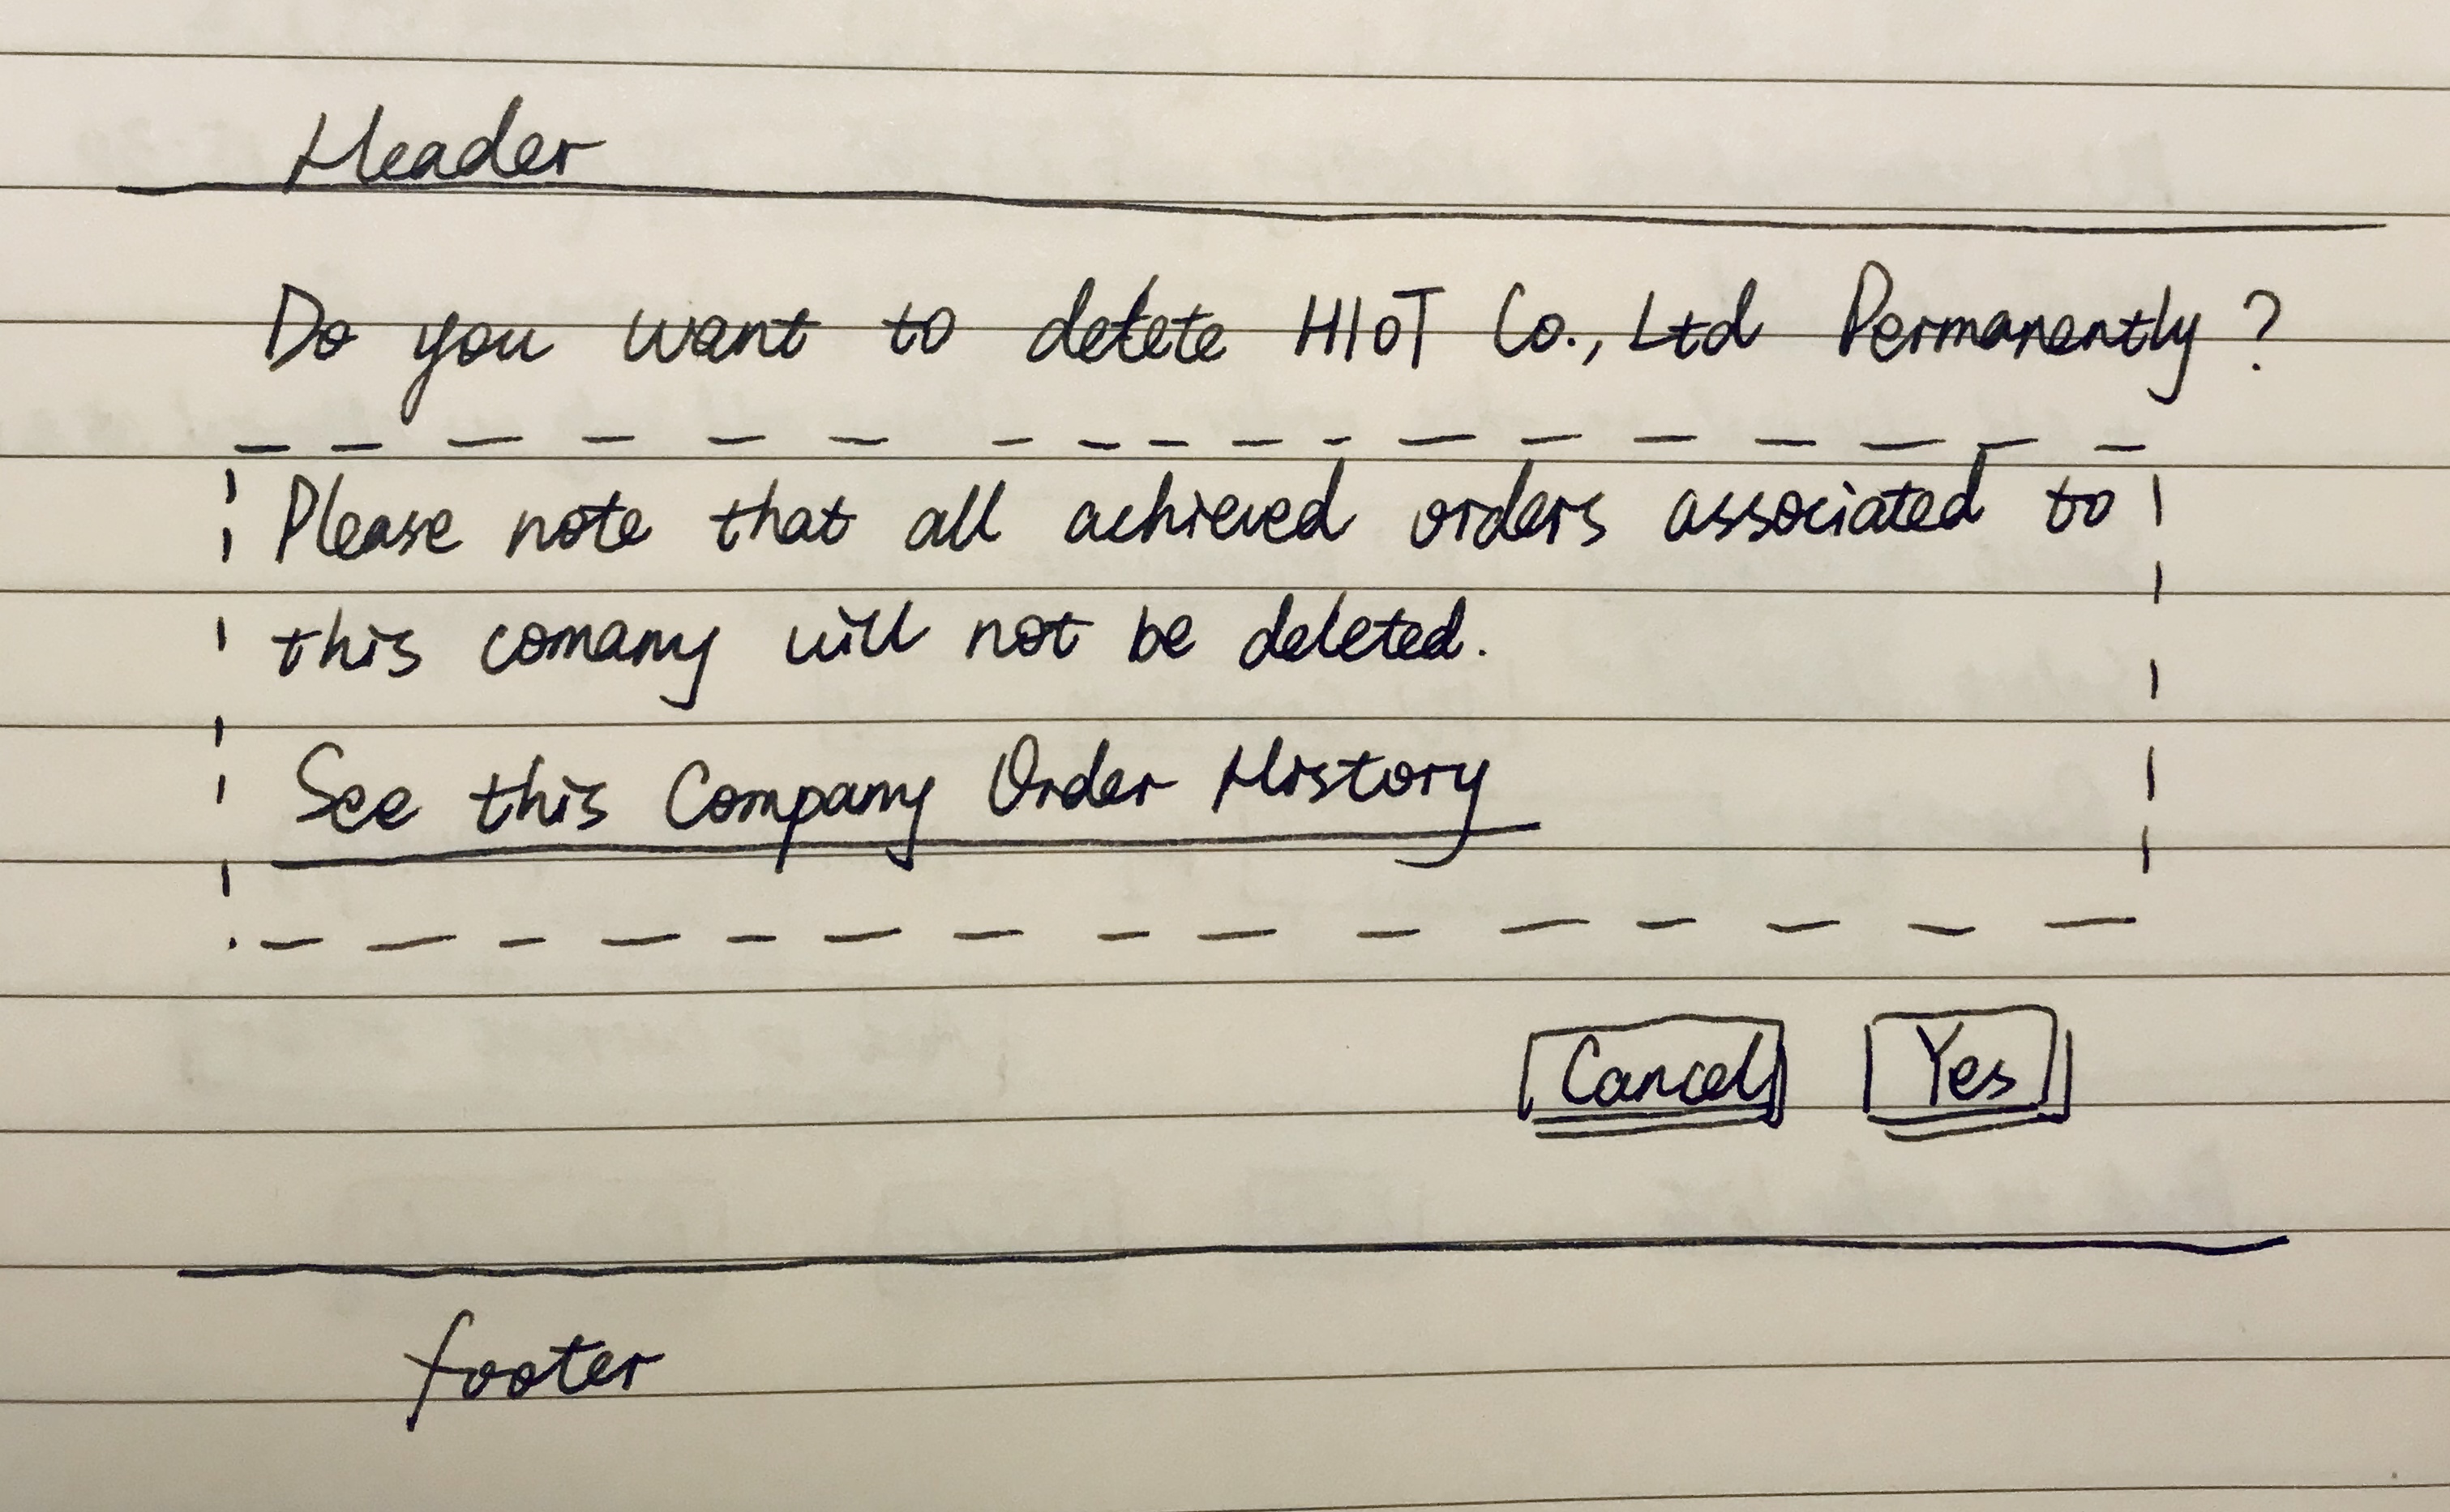 Header
Do you want to delete HIoT Co., Ltd Permanently?
Please note that all achieved orders associated to
this comany will not be deleted.
See this Company Order History
Cancel Yes
footer